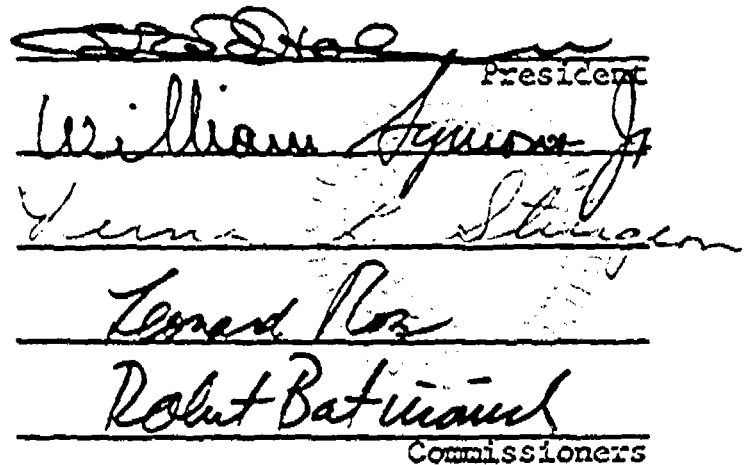 President
William Symons Jr
Vernon L. Sturgeon
Leonard Ross
Robert Batinovich
Commissioners